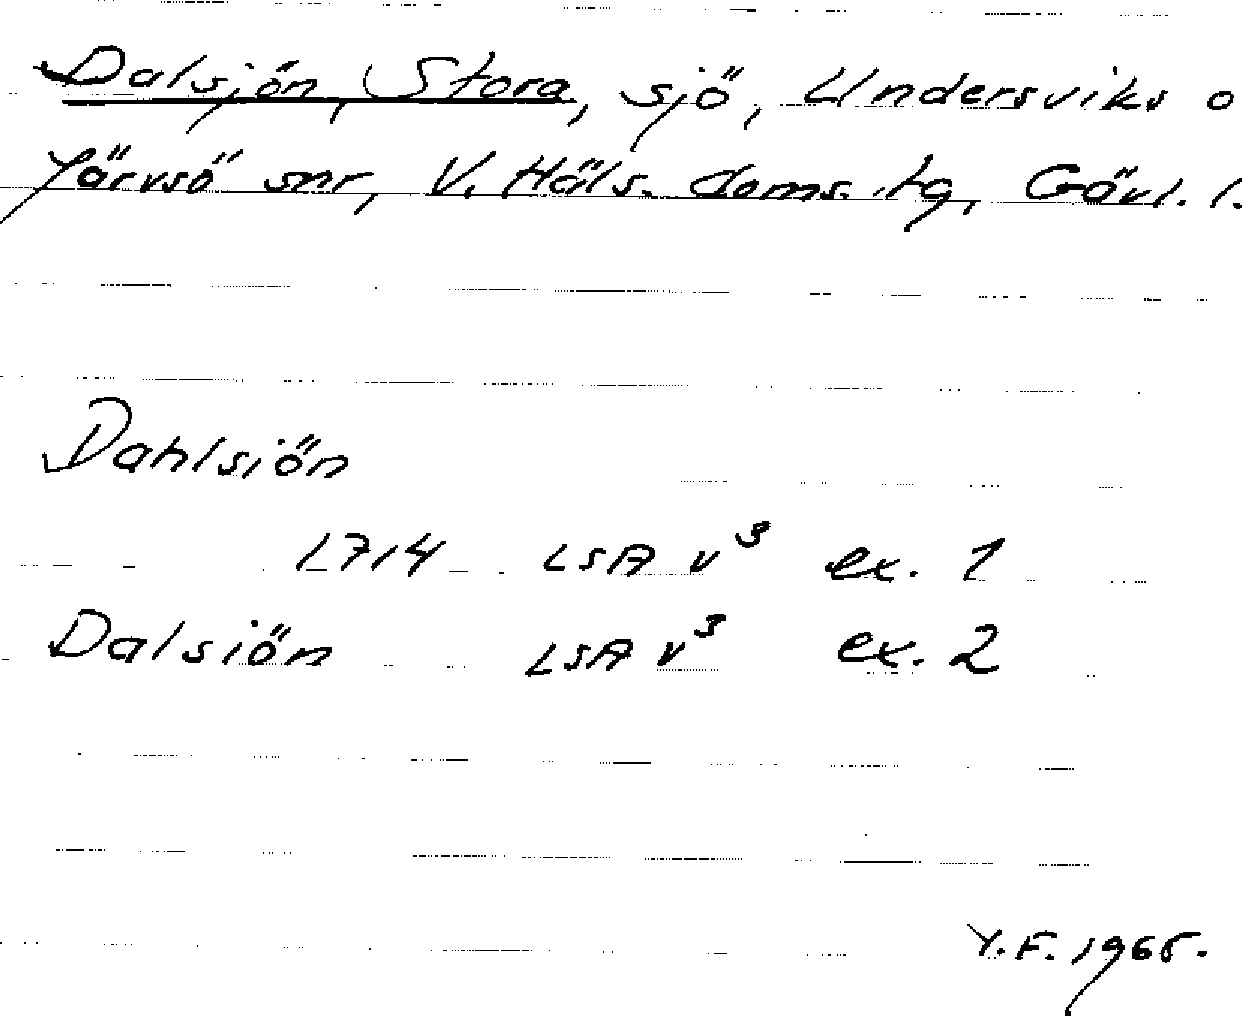 Dalsjön, Stora, sjö, Undersviks o
Järvsö snr, V. Häls. doms. tg, Gävl. l.
Dahlsiön
1714 LSA v³ ex. 1
Dalsiön LSA v³ ex. 2
Y.F. 1965.